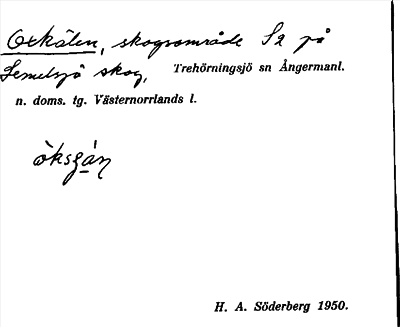 Oxkälen, skogsområde S2 på
Lemelsjö skog, Trehörningsjö sn Ångermanl.
n. doms. tg. Västernorrlands l.
H. A. Söderberg 1950.